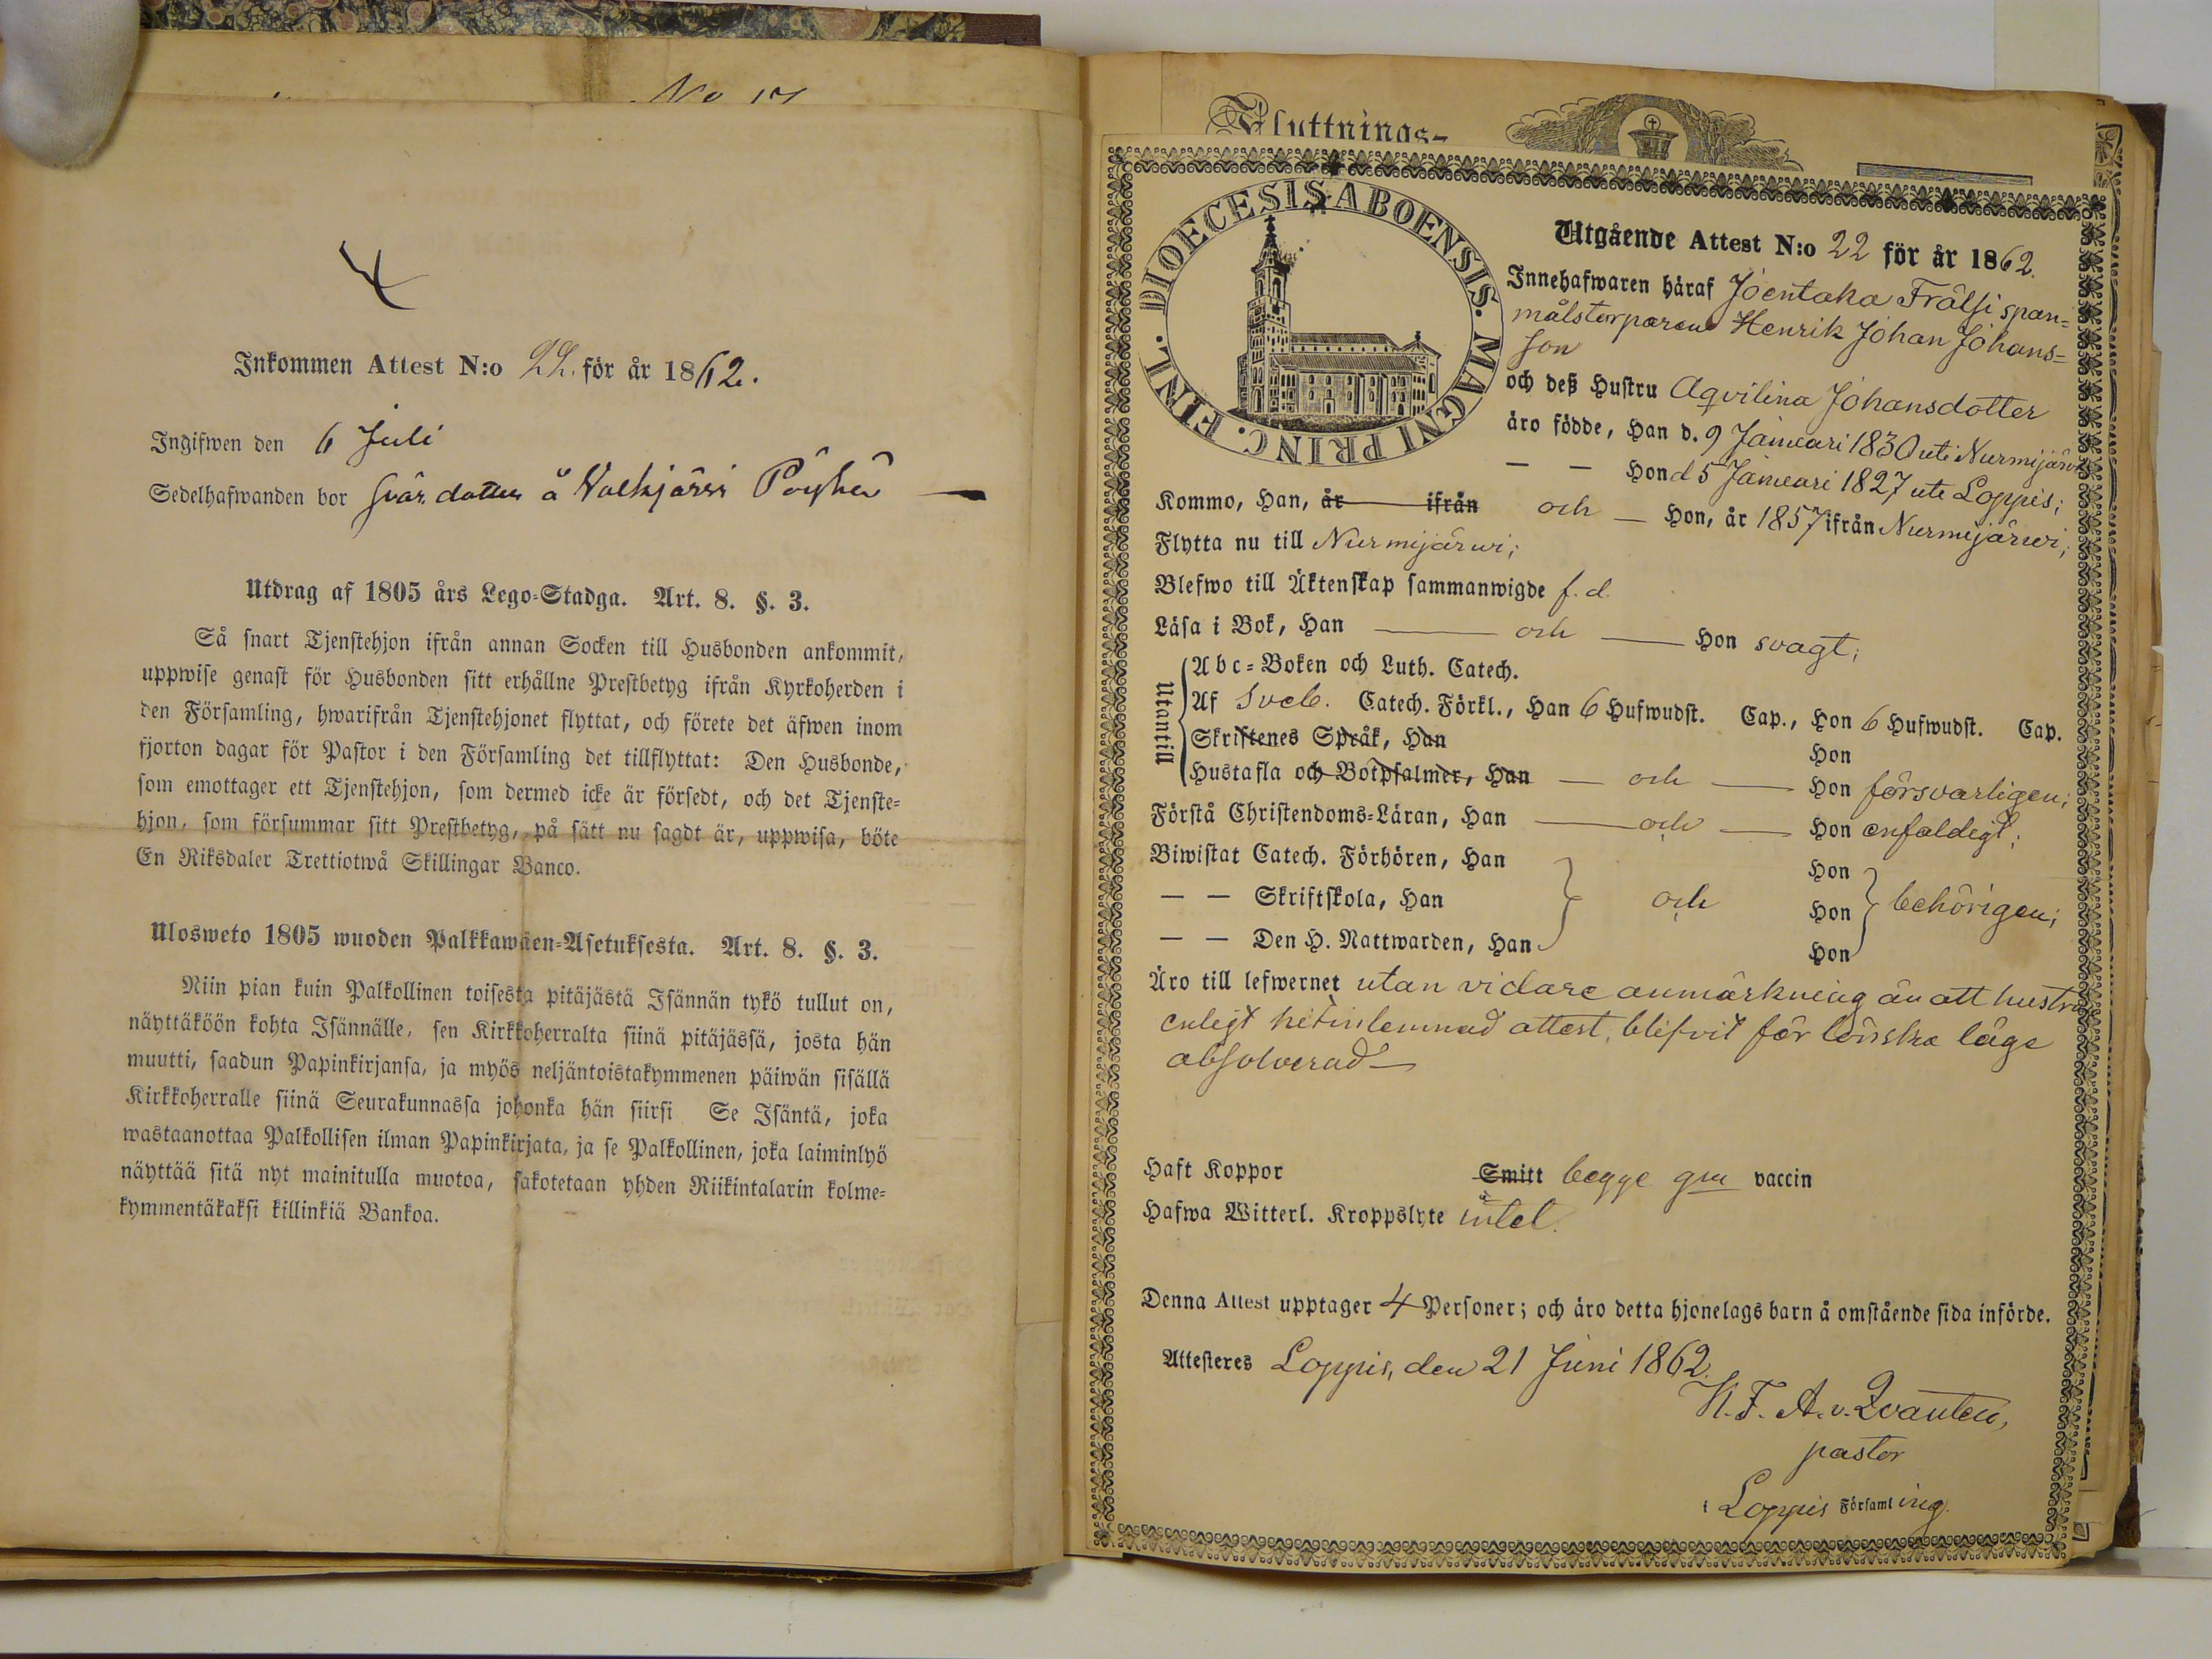 No 17
Inkommen Attest N:o 22. för år 1862.
Ingifwen den 6 Juli
Sedelhafwanden bor å
Utdrag af 1805 års Lego-Stadga. Art. 8. §. 3.
Så snart Tjenstehjon ifrån annan Socken till Husbonden ankommit,
uppwise genast för Husbonden sitt erhållne Prestbetyg ifrån Kyrkoherden i
den Församling, hwarifrån Tjenstehjonet flyttat, och förete det äfwen inom
fjorton dagar för Pastor i den Församling det tillflyttat: Den Husbonde,
som emottager ett Tjenstehjon, som dermed icke är försedt, och det Tjenste-
hjon, som försummar sitt Prestbetyg, på sätt nu sagdt är, uppwisa, böte
En Riksdaler Trettiotwå Skillingar Banco.
Ulosweto 1805 wuoden Palkkawäen-Asetuksesta. Art. 8. §. 3.
Niin pian kuin Palkollinen toisesta pitäjästä Isännän tykö tullut on,
näyttäköön kohta Isännälle, sen Kirkkoherralta siinä pitäjässä, josta hän
muutti, saadun Papinkirjansa, ja myös neljäntoistakymmenen päiwän sisällä
Kirkkoherralle siinä Seurakunnassa johonka hän siirsi Se Isäntä, joka
wastaanottaa Palkollisen ilman Papinkirjata, ja se Palkollinen, joka laiminlyö
näyttää sitä nyt mainitulla muotoa, sakotetaan yhden Riikintalarin kolme-
kymmentäkaksi killinkiä Bankoa.
Flyttnings-
DIOECESIS ABOENSIS. MAGNI PRINC. FINL.
Utgående Attest N:o 22 för år 1862.
Innehafwaren häraf Joentaka Frälsi span-
målstorparen Henrik Johan Johans-
son
och deß Hustru Aqvilina Johansdotter
äro födde, Han d. 9 Januari 1830 uti Nurmijärvi
— — Hon d 5 Januari 1827 uti Loppis;
Kommo, Han, år ifrån och — Hon, år 1857 ifrån Nurmijärvi;
Flytta nu till Nurmijärwi;
Blefwo till Äktenskap sammanwigde f. d.
Läsa i Bok, Han — och — Hon svagt;
Utantill
Abc-Boken och Luth. Catech.
Af Sveb. Catech. Förkl., Han 6 Hufwudst. Cap., Hon 6 Hufwudst. Cap.
Skriftenes Språk, Han Hon
Hustafla och Botpsalmer, Han — och — Hon försvarligen;
Förstå Christendoms-Läran, Han — och — Hon enfaldigt;
Biwistat Catech. Förhören, Han Hon
— — Skriftskola, Han och Hon behörigen;
— — Den H. Nattwarden, Han Hon
Äro till lefwernet utan vidare anmärkning än att hustru
enligt hitinlemnad attest, blifvit för lönska läge
absolverad —
Haft Koppor Smitt begge gm vaccin
Hafwa Witterl. Kroppslyte intet.
Denna Attest upptager 4 Personer; och äro detta hjonelags barn å omstående sida införde.
Attesteres Loppis, den 21 Juni 1862.
K. F. A. v. Qvanten,
pastor
i Loppis Församling.